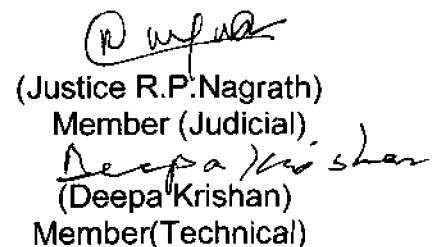 (Justice R.P.Nagrath)
Member (Judicial)
Deepa Krishan
(Deepa Krishan)
Member(Technical)